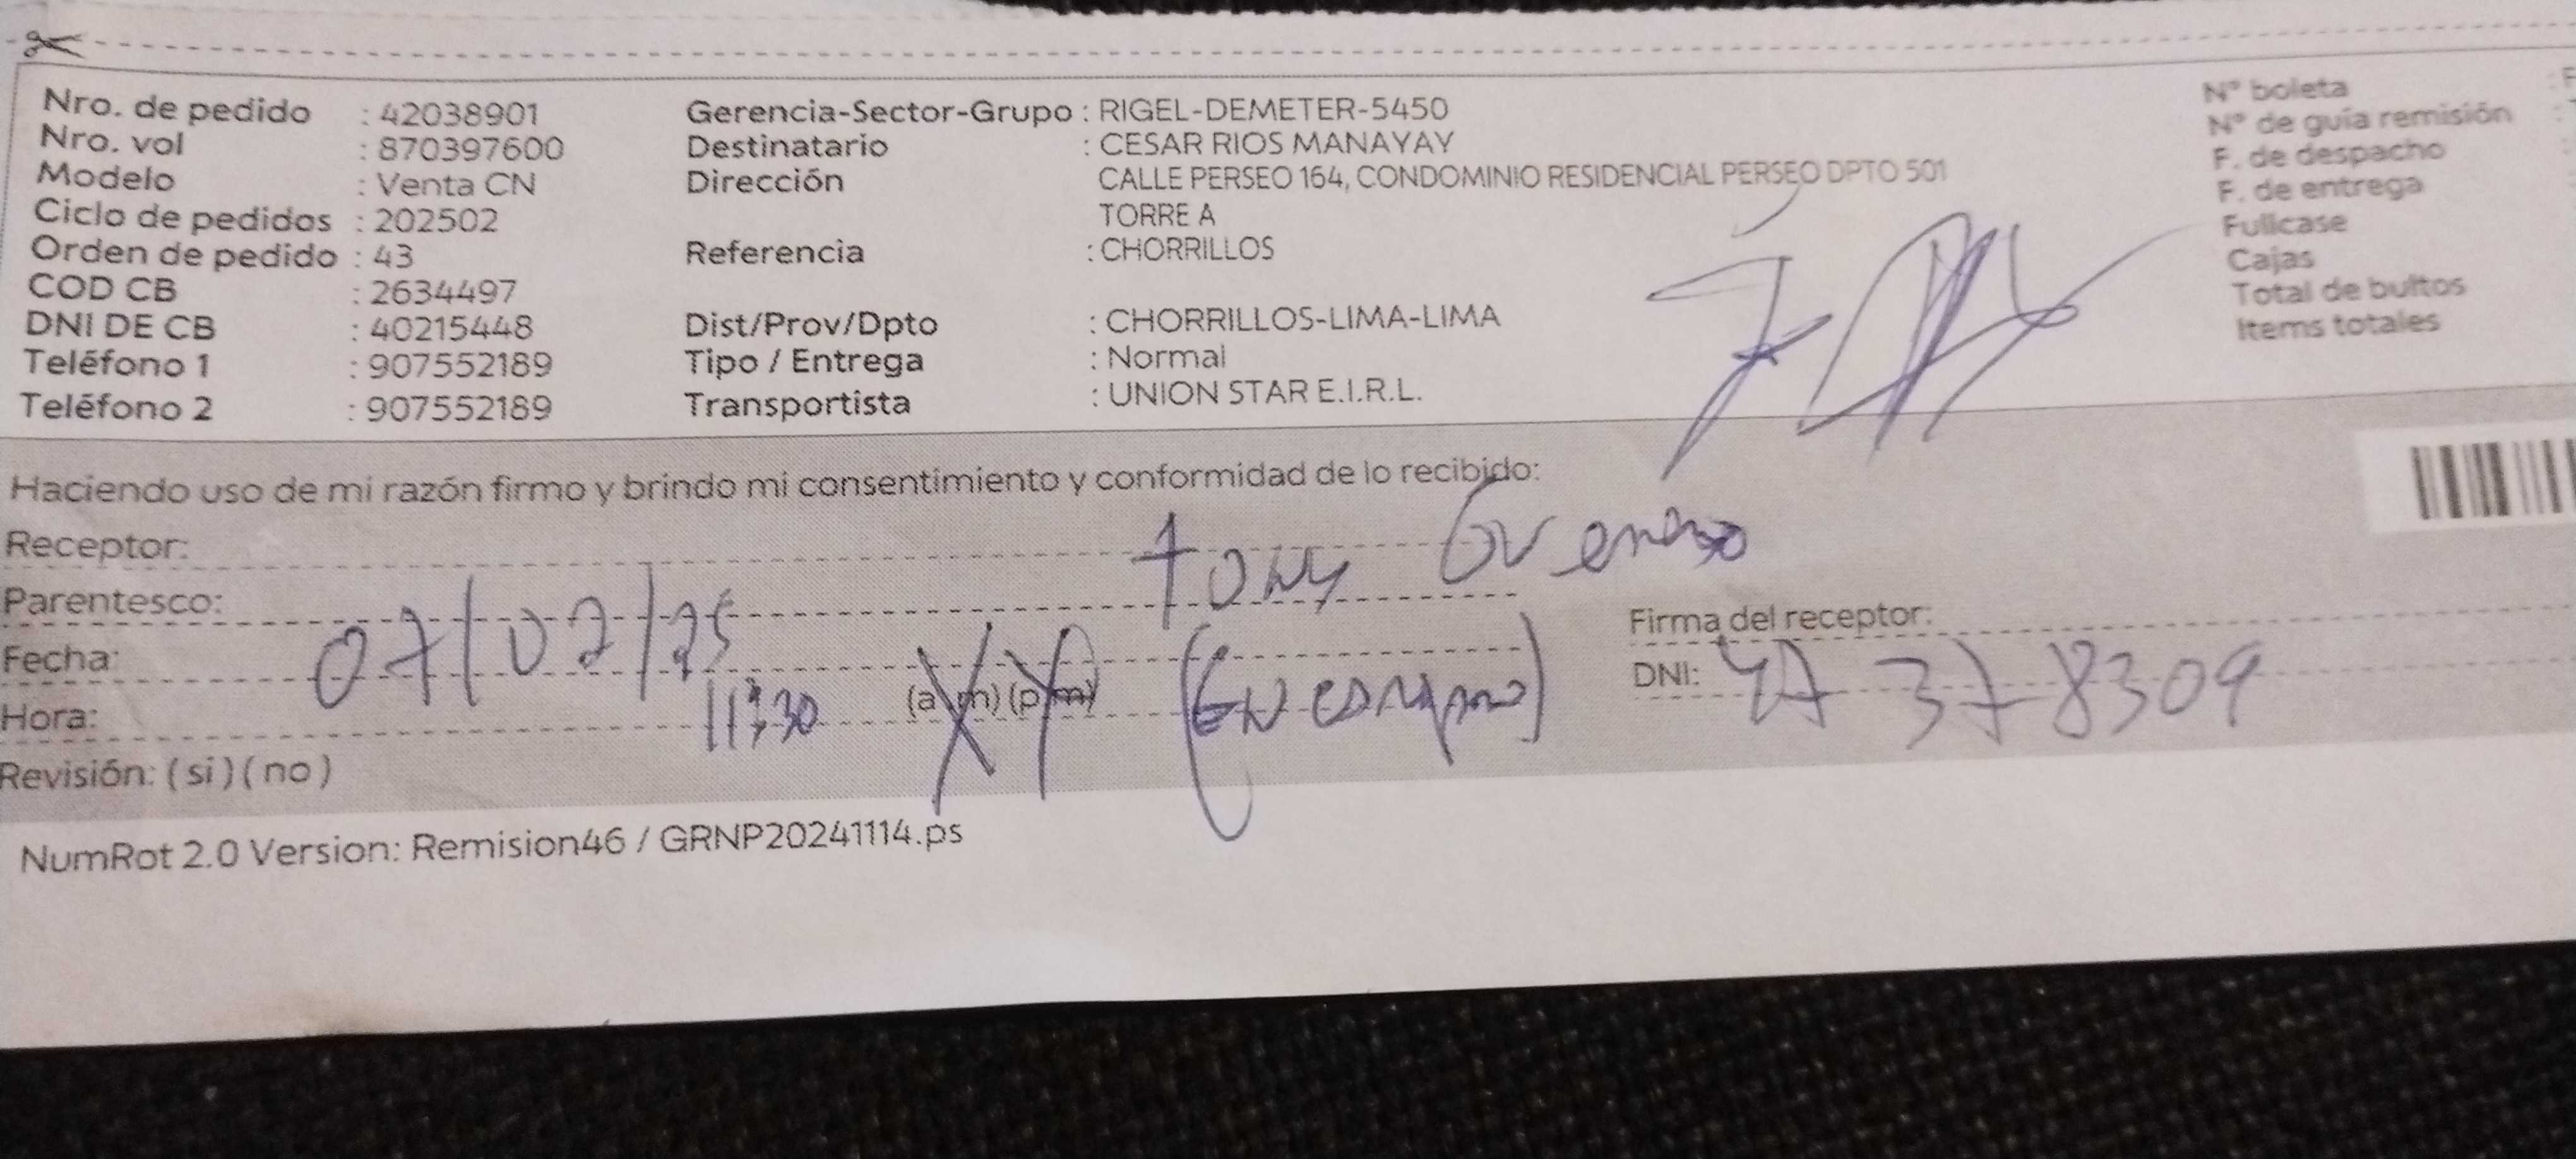 Nro. de pedido : 42038901
Nro. vol : 870397600
Modelo : Venta CN
Ciclo de pedidos : 202502
Orden de pedido : 43
COD CB : 2634497
DNI DE CB : 40215448
Teléfono 1 : 907552189
Teléfono 2 : 907552189
Gerencia-Sector-Grupo : RIGEL-DEMETER-5450
Destinatario : CESAR RIOS MANAYAY
Dirección CALLE PERSEO 164, CONDOMINIO RESIDENCIAL PERSEO DPTO 501
TORRE A
Referencia : CHORRILLOS
Dist/Prov/Dpto : CHORRILLOS-LIMA-LIMA
Tipo / Entrega : Normal
Transportista : UNION STAR E.I.R.L.
N° boleta : F
N° de guía remisión :
F. de despacho
F. de entrega
Fullcase
Cajas
Total de bultos
Items totales
Haciendo uso de mi razón firmo y brindo mi consentimiento y conformidad de lo recibido:
Receptor: Tony
Parentesco:
Fecha: 07/02/25
Hora: 11:30 (a m) (p m)
Revisión: ( si ) ( no )
Firma del receptor:
DNI: 47378309
NumRot 2.0 Version: Remision46 / GRNP20241114.ps